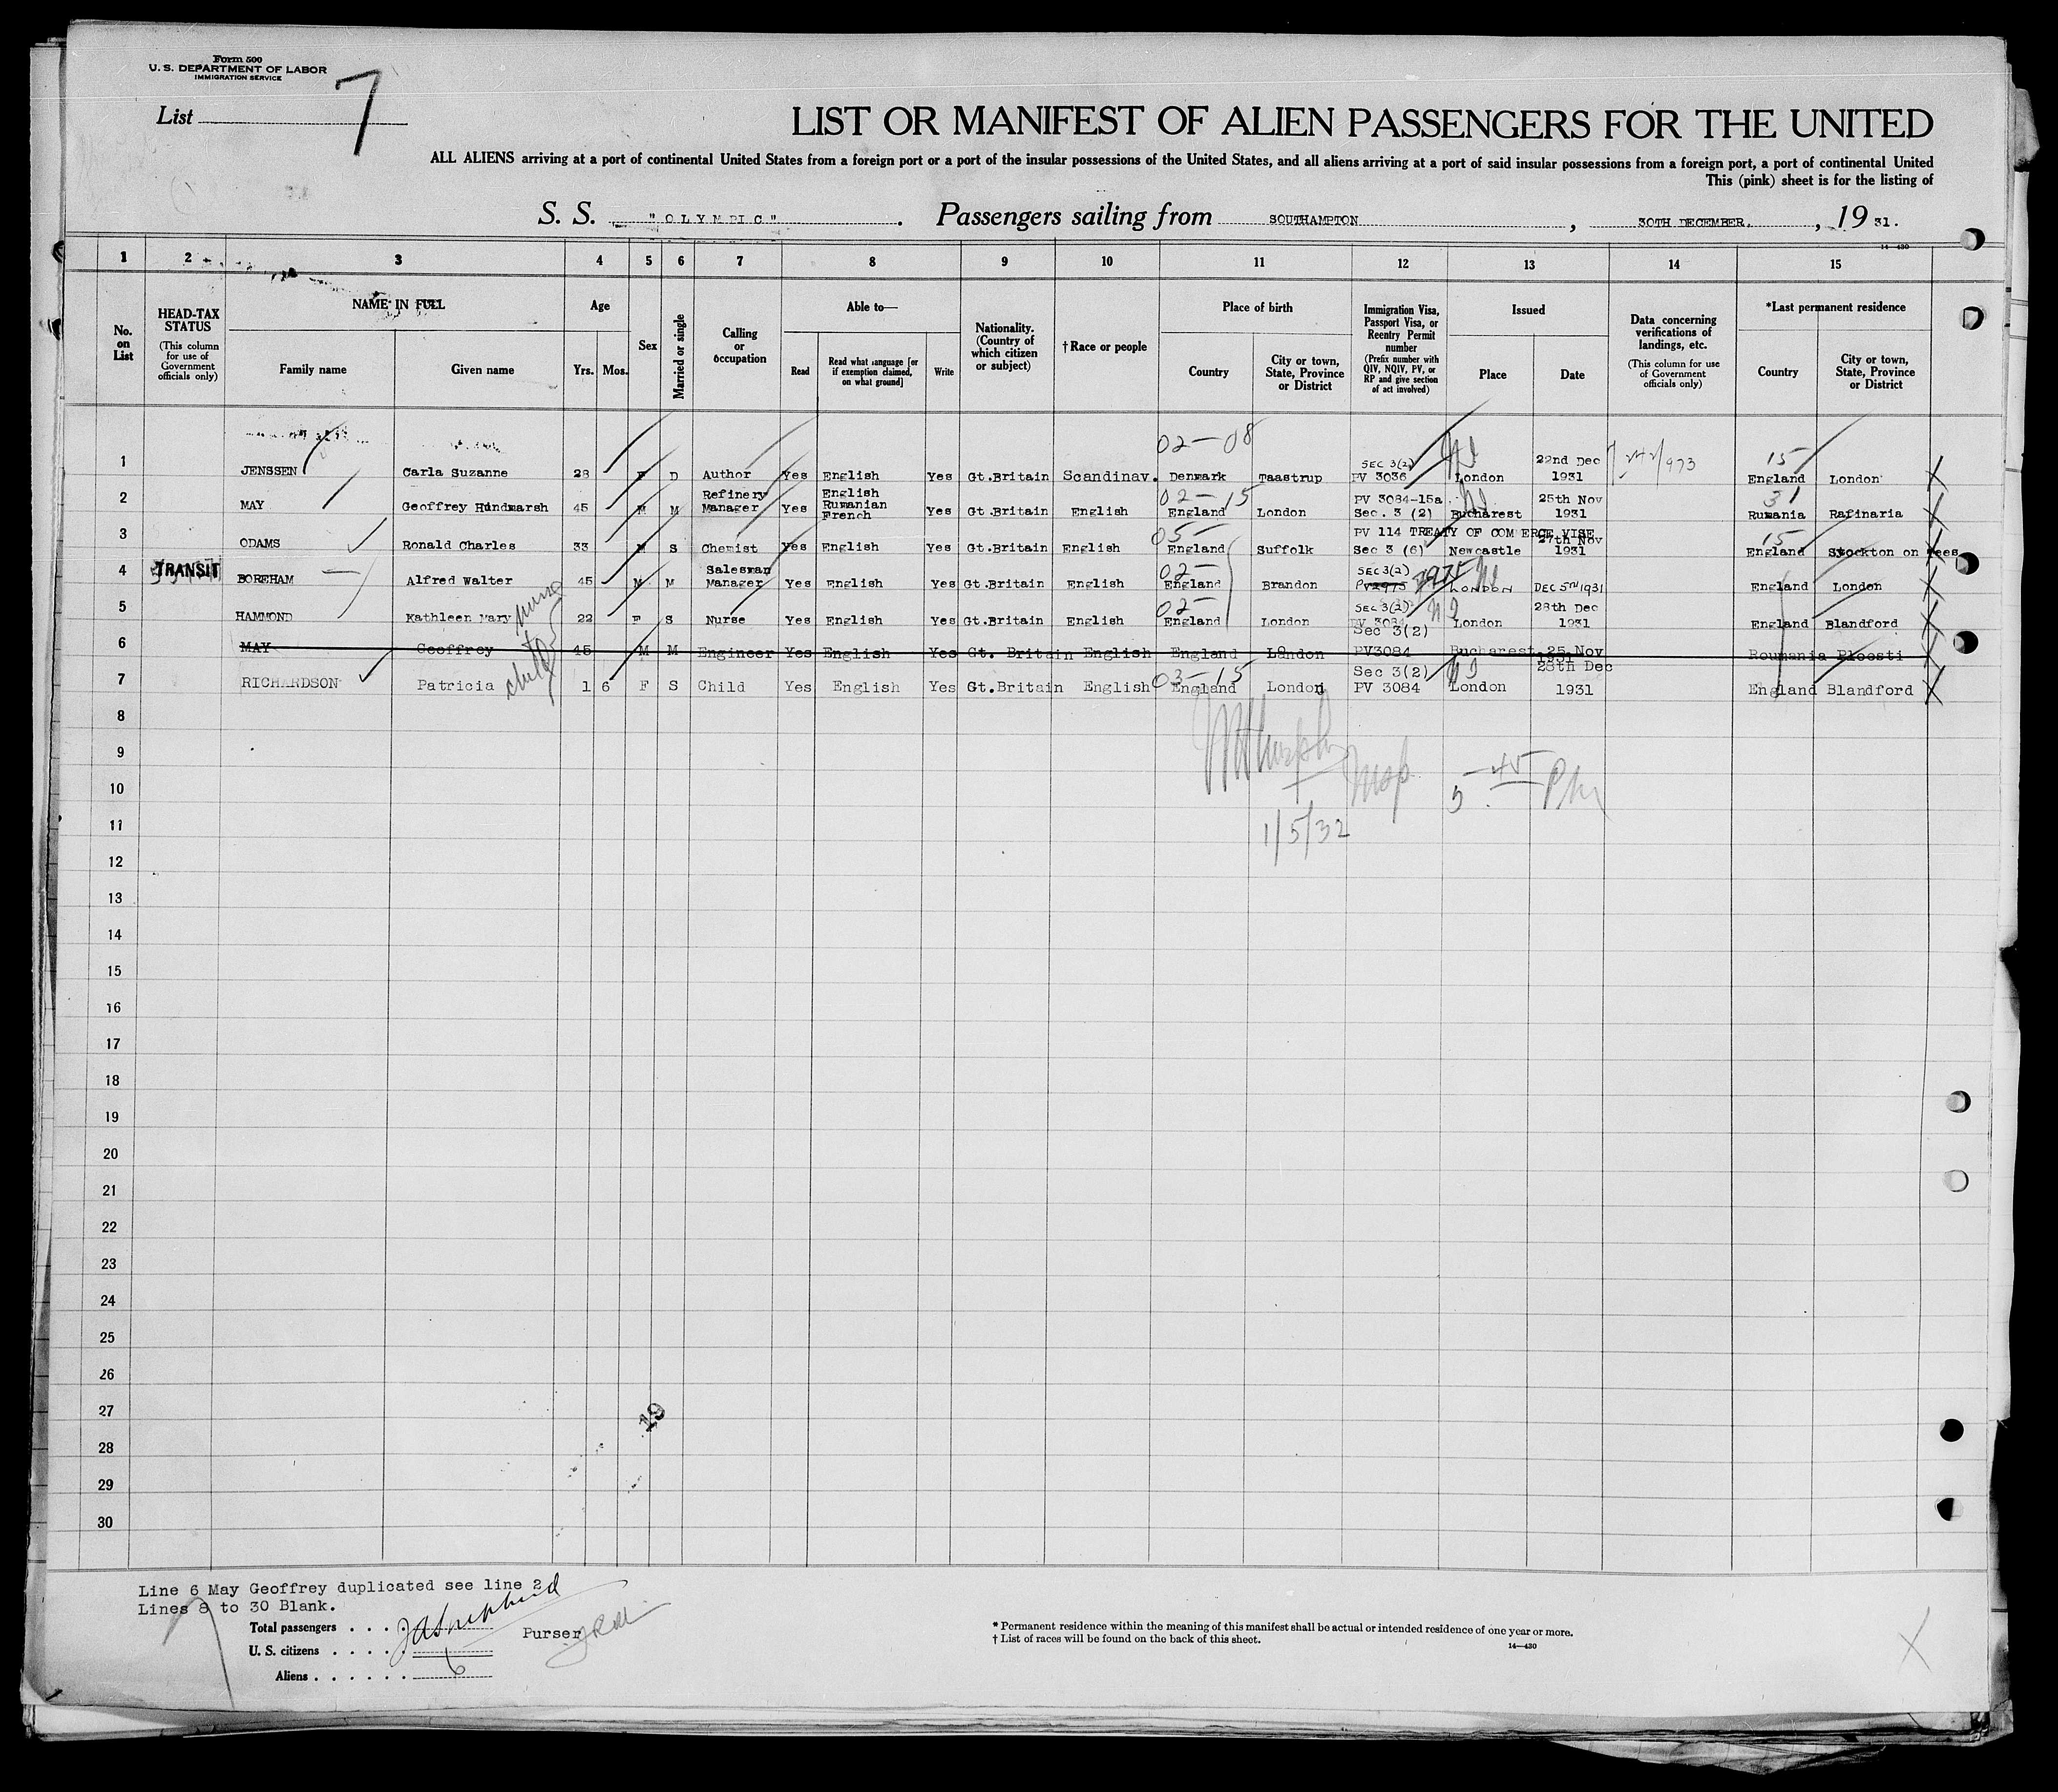 Form 500
U. S. DEPARTMENT OF LABOR
IMMIGRATION SERVICE
List 7
LIST OR MANIFEST OF ALIEN PASSENGERS FOR THE UNITED
ALL ALIENS arriving at a port of continental United States from a foreign port or a port of the insular possessions of the United States, and all aliens arriving at a port of said insular possessions from a foreign port, a port of continental United
This (pink) sheet is for the listing of
S. S. "OLYMPIC". Passengers sailing from SOUTHAMPTON, 30TH DECEMBER., 19 31.
14—430
1 2 3 4 5 6 7 8 9 10 11 12 13 14 15
No. on List
HEAD-TAX STATUS
(This column for use of Government officials only)
NAME IN FULL
Family name Given name
Age
Yrs. Mos.
Sex
Married or single
Calling or occupation
Able to—
Read
Read what language [or if exemption claimed, on what ground]
Write
Nationality. (Country of which citizen or subject)
†Race or people
Place of birth
Country
City or town, State, Province or District
Immigration Visa, Passport Visa, or Reentry Permit number
(Prefix number with QIV, NQIV, PV, or RP and give section of act involved)
Issued
Place Date
Data concerning verifications of landings, etc.
(This column for use of Government officials only)
*Last permanent residence
Country
City or town, State, Province or District
02—08 SEC 3(2) 22nd Dec 15
1 JENSSEN Carla Suzanne 28 F D Author Yes English Yes Gt.Britain Scandinav. Denmark Taastrup PV 3036 London 1931 England London
Refinery English 02—15 PV 3084-15a 25th Nov 31
2 MAY Geoffrey Hindmarsh 45 M M Manager Yes Rumanian French Yes Gt.Britain English England London Sec. 3 (2) Bucharest 1931 Rumania Rafinaria
05— PV 114 TREATY OF COMERCE VISE 27th Nov 15
3 ODAMS Ronald Charles 33 M S Chemist Yes English Yes Gt.Britain English England Suffolk Sec 3 (6) Newcastle 1931 England Stockton on Tees
TRANSIT Salesman 02— SEC 3(2)
4 BOREHAM Alfred Walter 45 M M Manager Yes English Yes Gt.Britain English England Brandon PV2975 2975 LONDON DEC 5TH 1931 England London
nurse 02— SEC 3(2) 28th Dec
5 HAMMOND Kathleen Mary 22 F S Nurse Yes English Yes Gt.Britain English England London PV 3084 London 1931 England Blandford
Sec 3(2)
6 MAY Geoffrey 45 M M Engineer Yes English Yes Gt. Britain English England London PV3084 Bucharest 25 Nov 1931 Roumania Ploesti
03—15 Sec 3(2) 28th Dec
7 RICHARDSON Patricia 1 6 F S Child Yes English Yes Gt.Britain English England London PV 3084 London 1931 England Blandford
8
9
5—45 PM
10
11
1/5/32
12
13
14
15
16
17
18
19
20
21
22
23
24
25
26
27
19
28
29
30
Line 6 May Geoffrey duplicated see line 2
Lines 8 to 30 Blank.
Total passengers
Purser
U. S. citizens
Aliens 6
* Permanent residence within the meaning of this manifest shall be actual or intended residence of one year or more.
† List of races will be found on the back of this sheet.
14—430